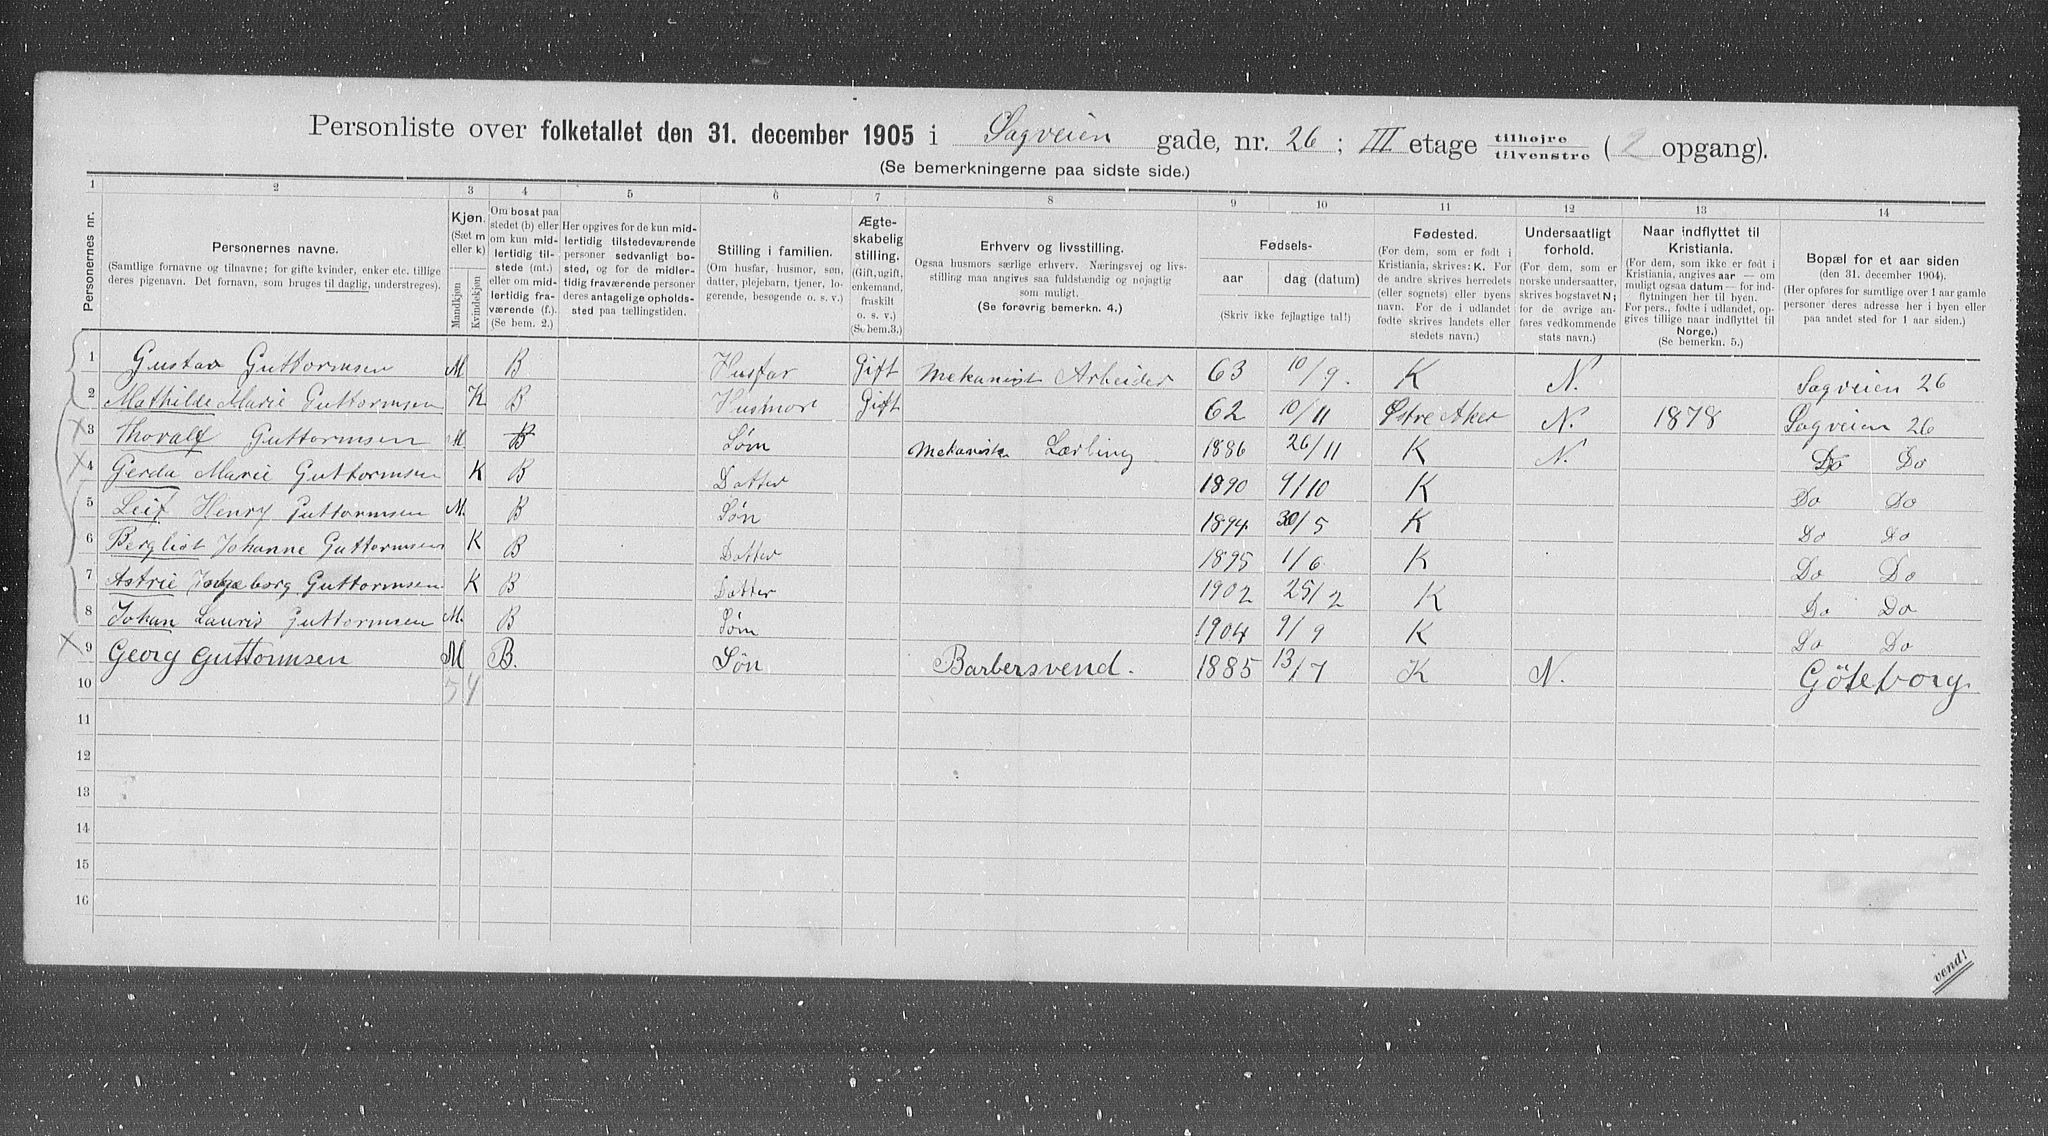 Personliste over folketallet den 31. december 1905 i Sagveien gade, nr. 26 ; III etage tilhøjre / tilvenstre ( 2 opgang).
(Se bemerkningerne paa sidste side.)
1 2 3 4 5 6 7 8 9 10 11 12 13 14
Personernes nr.
Personernes navne.
(Samtlige fornavne og tilnavne; for gifte kvinder, enker etc. tillige
deres pigenavn. Det fornavn, som bruges til daglig, understreges).
Kjøn.
(Sæt m
eller k)
Mandkjøn
Kvindekjøn
Om bosat paa
stedet (b) eller
om kun mid-
lertidig til-
stede (mt.)
eller om mid-
lertidig fra-
værende (f.).
(Se bem. 2.)
Her opgives for de kun mid-
lertidig tilstedeværende
personer sedvanligt bo-
sted, og for de midler-
tidig fraværende personer
deres antagelige opholds-
sted paa tællingstiden.
Stilling i familien.
(Om husfar, husmor, søn,
datter, plejebarn, tjener, lo-
gerende, besøgende o. s. v.)
Ægte-
skabelig
stilling.
(Gift, ugift,
enkemand,
fraskilt
o. s. v.)
(Se bem.3.)
Erhverv og livsstilling.
Ogsaa husmors særlige erhverv. Næringsvej og livs-
stilling maa angives saa fuldstændig og nøjagtig
som muligt.
(Se forøvrig bemerkn. 4.)
Fødsels-
aar
dag (datum)
(Skriv ikke fejlagtige tal!)
Fødested.
(For dem, som er født i
Kristiania, skrives: K. For
de andre skrives herredets
(eller sognets) eller byens
navn. For de i udlandet
fødte skrives landets eller
stedets navn.)
Undersaatligt
forhold.
(For dem, som er
norske undersaatter,
skrives bogstavet N;
for de øvrige an-
føres vedkommende
stats navn.)
Naar indflyttet til
Kristiania.
(For dem, som ikke er født i
Kristiania, angives aar — om
muligt ogsaa datum — for ind-
flytningen her til byen.
For pers., fødte i udlandet, op-
gives tillige naar indflyttet til
Norge.)
(Se bemerkn. 5.)
Bopæl for et aar siden
(den 31. december 1904).
(Her opføres for samtlige over 1 aar gamle
personer deres adresse her i byen eller
paa andet sted for 1 aar siden.)
1 Gustav Guttormsen M. B Husfar Gift Mekanisk Arbeider 63 10/9. K N. Sagveien 26
2 Mathilde Marie Guttormsen K B Husmor Gift 62 10/11 Østre Aker N. 1878 Sagveien 26
3 Thoralf Guttormsen M. B Søn Mekanisk Lærling 1886 26/11 K N. Do Do
4 Gerda Marie Guttormsen K B Datter 1890 9/10 K Do Do
5 Leif Henry Guttormsen M. B Søn 1894 30/5 K Do Do
6 Bergliot Johanne Guttormsen K B Datter 1895 1/6 K Do Do
7 Astrie Ingeborg Guttormsen K B Datter 1902 25/2 K Do Do
8 Johan Lauris Guttormsen M. B Søn 1904 9/9 K Do Do
9 Georg Guttormsen M B. Søn Barbersvend. 1885 13/7 K N. Göteborg
10 5 4
11
12
13
14
15
16
vend!